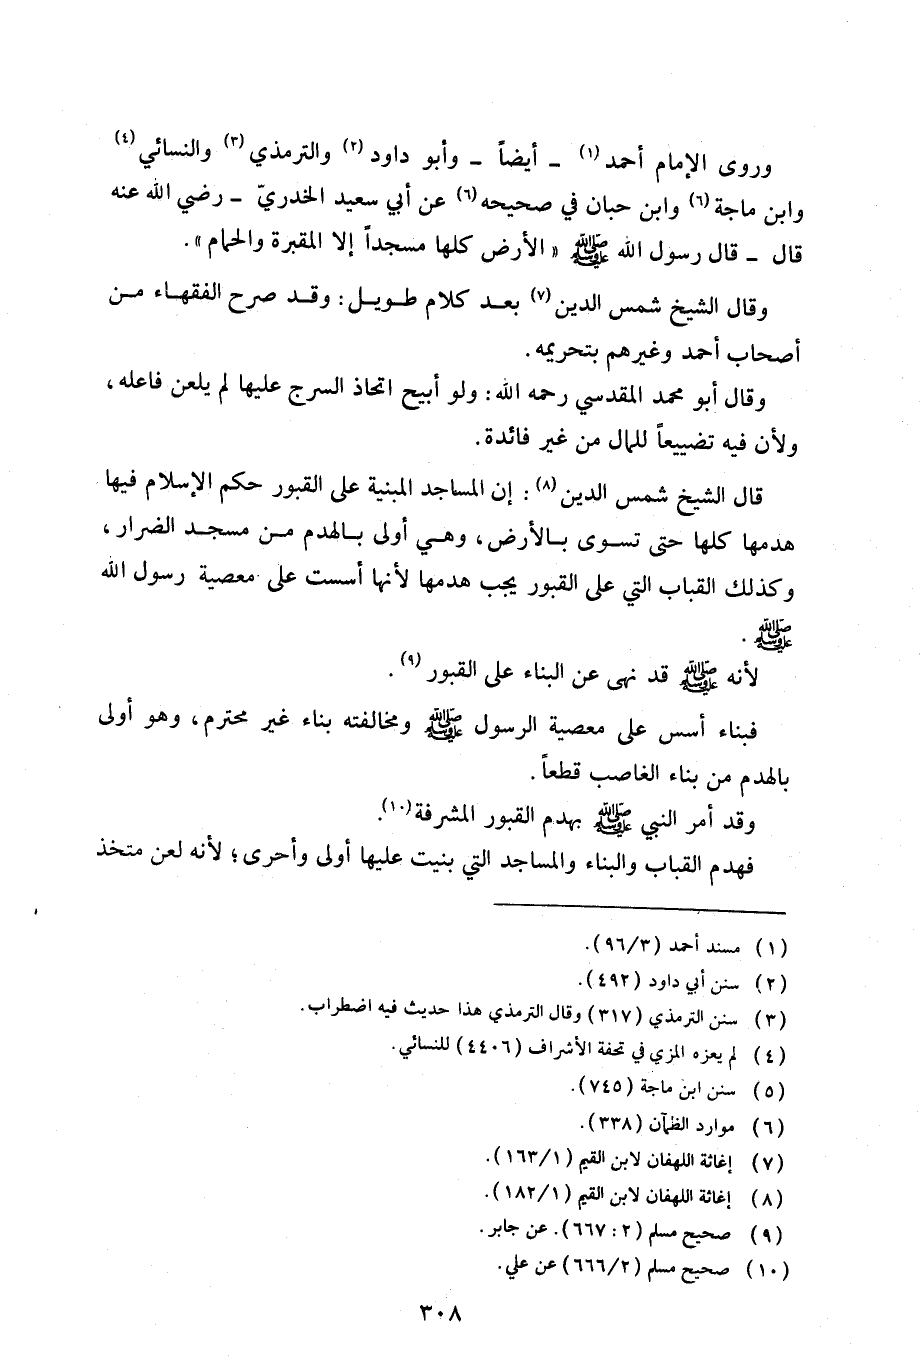 وروى الإمام أحمد(١) - أيضاً - وأبو داود(٢) والترمذي(٣) والنسائي(٤)
وابن ماجة(٦) وابن حبان في صحيحه(٦) عن أبي سعيد الخدريّ - رضي الله عنه
قال - قال رسول الله ﷺ «الأرض كلها مسجداً إلا المقبرة والحمام».
وقال الشيخ شمس الدين(٧) بعد كلام طويل: وقد صرح الفقهاء من
أصحاب أحمد وغيرهم بتحريمه.
وقال أبو محمد المقدسي رحمه الله: ولو أبيح اتخاذ السرج عليها لم يلعن فاعله،
ولأن فيه تضييعاً للمال من غير فائدة.
قال الشيخ شمس الدين(٨): إن المساجد المبنية على القبور حكم الإسلام فيها
هدمها كلها حتى تسوى بالأرض، وهي أولى بالهدم من مسجد الضرار،
وكذلك القباب التي على القبور يجب هدمها لأنها أسست على معصية رسول الله
ﷺ.
لأنه ﷺ قد نهى عن البناء على القبور(٩).
فبناء أسس على معصية الرسول ﷺ ومخالفته بناء غير محترم، وهو أولى
بالهدم من بناء الغاصب قطعاً.
وقد أمر النبي ﷺ بهدم القبور المشرفة(١٠).
فهدم القباب والبناء والمساجد التي بنيت عليها أولى وأحرى؛ لأنه لعن متخذ
(١) مسند أحمد (٩٦/٣).
(٢) سنن أبي داود (٤٩٢).
(٣) سنن الترمذي (٣١٧) وقال الترمذي هذا حديث فيه اضطراب.
(٤) لم يعزه المزي في تحفة الأشراف (٤٤٠٦) للنسائي.
(٥) سنن ابن ماجة (٧٤٥).
(٦) موارد الظمآن (٣٣٨).
(٧) إغاثة اللهفان لابن القيم (١٦٣/١).
(٨) إغاثة اللهفان لابن القيم (١٨٢/١).
(٩) صحيح مسلم (٢: ٦٦٧). عن جابر.
(١٠) صحيح مسلم (٦٦٦/٢) عن علي.
٣٠٨